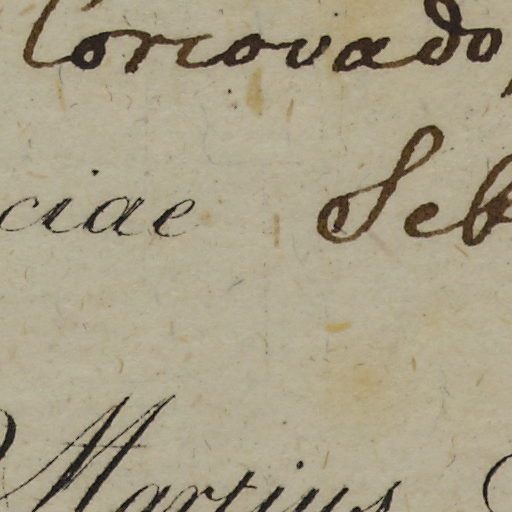 Corcovado,
ciae Seb
Martius